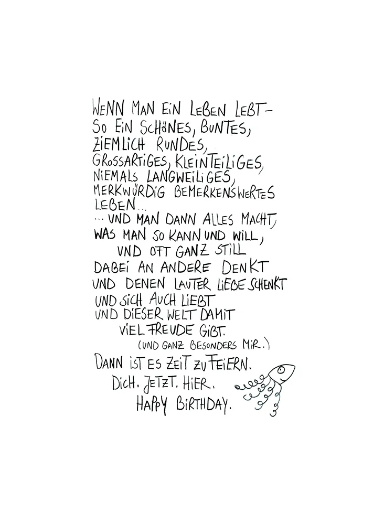 WENN MAN EIN LEBEN LEBT –
SO EIN SCHÖNES, BUNTES,
ZIEMLICH RUNDES,
GROSSARTIGES, KLEINTEILIGES,
NIEMALS LANGWEILIGES,
MERKWÜRDIG BEMERKENSWERTES
LEBEN...
... UND MAN DANN ALLES MACHT,
WAS MAN SO KANN UND WILL,
UND OFT GANZ STILL
DABEI AN ANDERE DENKT
UND DENEN LAUTER LIEBE SCHENKT
UND SICH AUCH LIEBT
UND DIESER WELT DAMIT
VIEL FREUDE GIBT.
(UND GANZ BESONDERS MIR.)
DANN IST ES ZEIT ZU FEIERN.
DICH. JETZT. HIER.
HAPPY BIRTHDAY.